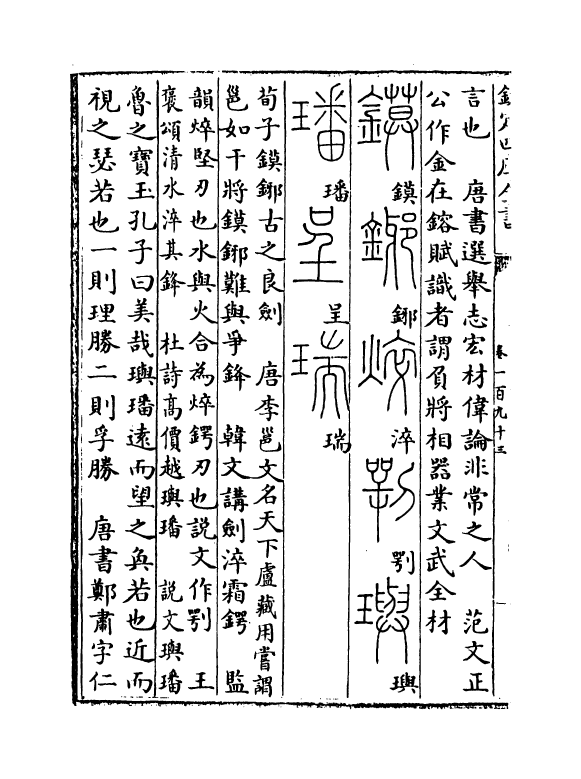 言也　唐書選舉志宏材偉論非常之人　范文正
公作金在鎔賦識者謂負將相器業文武全材
鏌鏌鎁鎁焠淬剽㓵璵璵
璠璠呈呈瑞瑞
荀子鏌鎁古之良劍　唐李邕文名天下盧藏用嘗謂
邕如干將鏌鎁難與爭鋒　韓文講劍淬霜鍔　監
韻焠堅刃也水與火合為焠鍔刃也說文作㓵　王
襃頌清水淬其鋒　杜詩高價越璵璠　說文璵璠
魯之寶玉孔子曰美哉璵璠遠而望之奐若也近而
視之瑟若也一則理勝二則孚勝　唐書鄭肅字仁
卷一百九十三